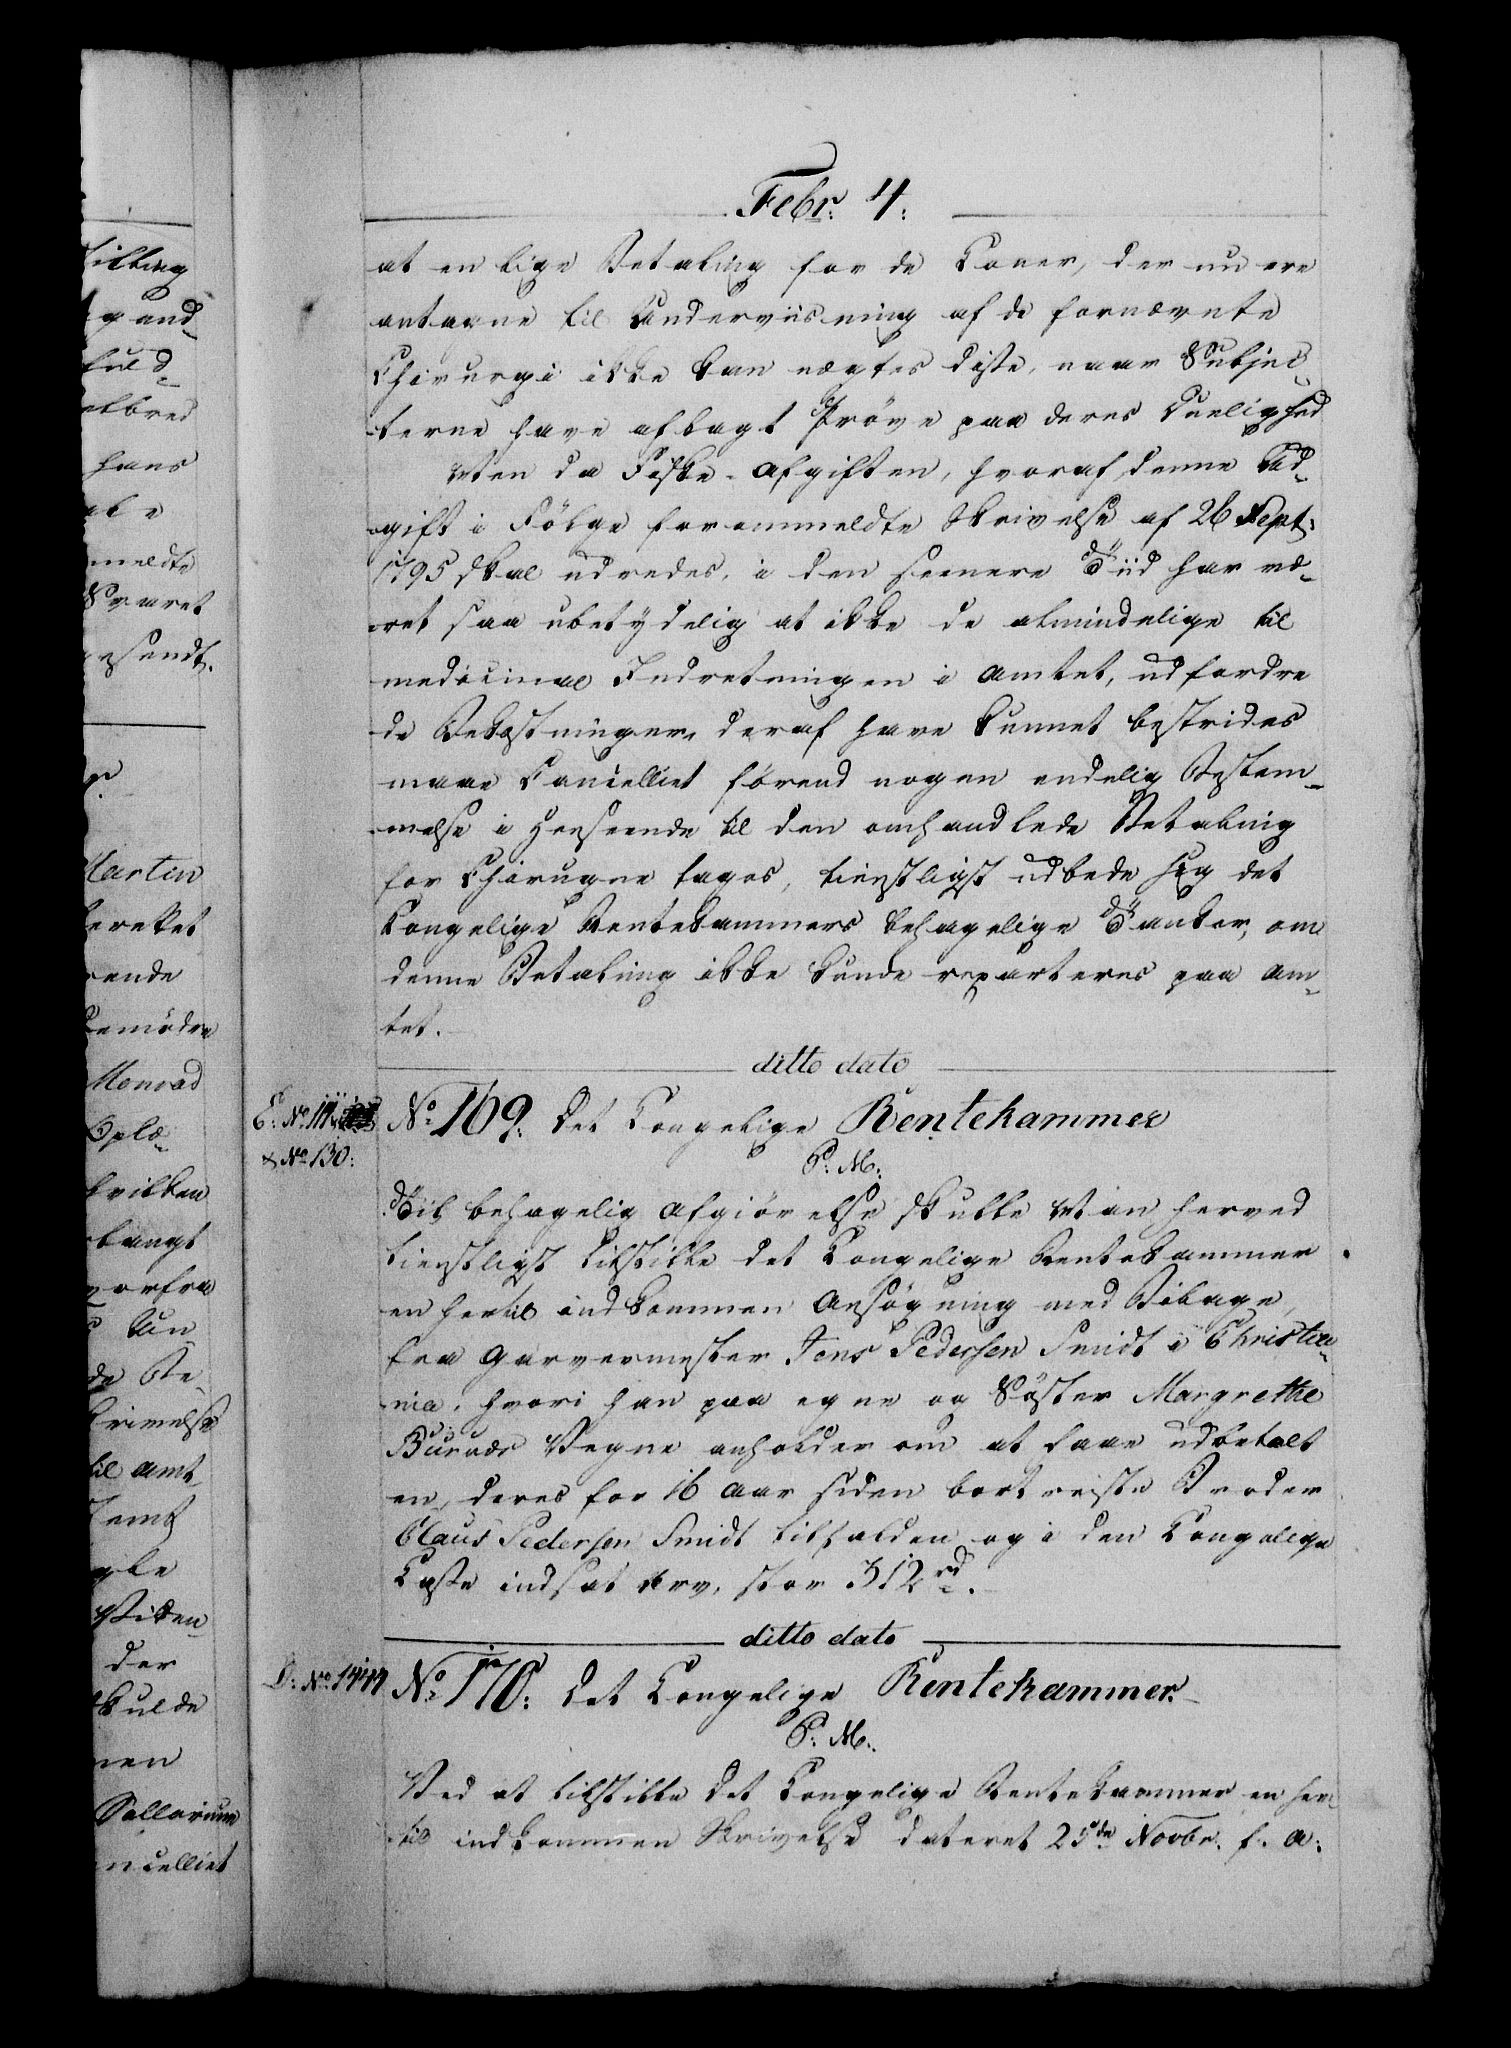 Febr: 4:
at en lige Betaling for de Koner, der nu ere
antagne til Underviisning af de fornævnte
Chirurgi ikke kan nægtes disse, naar Subjec-
terne have aflagt Prøve paa deres Duelighed
Men da Fiske-Afgiften, hvoraf denne Ud-
gift i Følge forommeldte Skrivelse af 26 Sept:
1795 skal udredes, i den seenere Tiid har væ-
ret saa ubetydelig at ikke de almindelige til
medicinal Indretningen i Amtet, udfordre
de Bekostninger, deraf have kunnet bestrides
maae Cancelliet förend nogen endelig Bestem-
melse i Henseende til den omhandlede Betaling
for Chirurgne tages, tienstligst udbede sig det
Kongelige Rentekammers behagelige Tanker, om
denne Betaling ikke kunde reparteres paa Am-
tet.
ditto dato
E: No 111
& No 130:
No 169: Det Kongelige Rentekammer
P: M:
Til behagelig Afgiørelse skulle Man herved
tienstligst tilstille det Kongelige Rentekammer
en hertil indkommen Ansøgning med Bilage,
fra Garvermester Jens Pedersen Smidt i Christia-
nia, hvori han paa egne og Söster Margrethe
Buuaas Vegne anholder om at faae udbetalt
en, deres for 16 Aar siden bortreiste Broder
Claus Pedersen Smidt tilfalden og i den Kongelige
Casse indsat Arv, stor 312 rd.
ditto dato
D: No 1444
No 170: Det Kongelige Rentekammer.
P: M:
Ved at tilstille det Kongelige Rentekammer en her-
til indkommen Skrivelse dateret 25de Novbr. f. A: